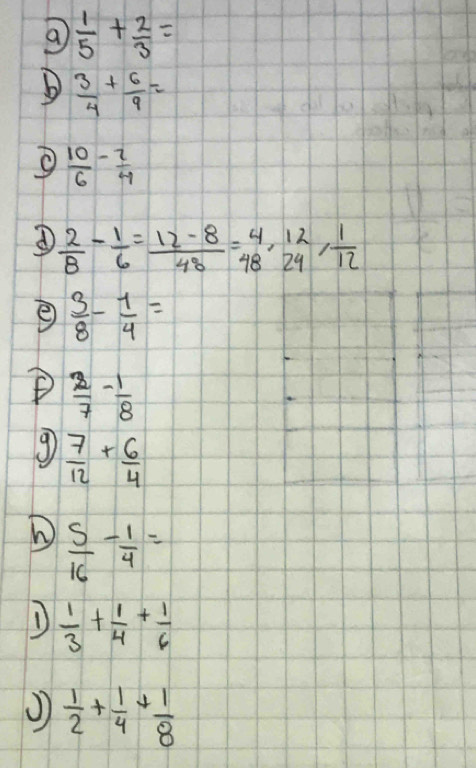 a) 1/5 + 2/3 =
b) 3/4 + 6/9 =
c) 10/6 - 2/4
d) 2/8 - 1/6 = 12 - 8/48 = 4/48, 12/24, 1/12
e) 3/8 - 1/4 =
f) 2/7 - 1/8
g) 7/12 + 6/4
h) 5/16 - 1/4 =
i) 1/3 + 1/4 + 1/6
J) 1/2 + 1/4 + 1/8